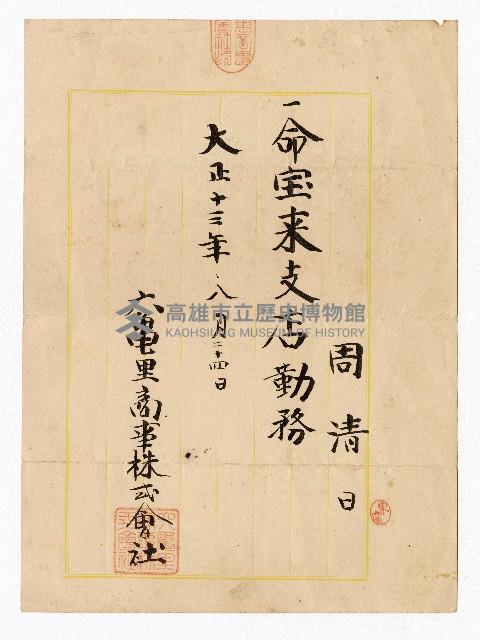 周清日
一命宝来支店勤務
大正十三年八月二十四日
六亀里商事株式會社
高雄市立歷史博物館
KAOHSIUNG MUSEUM OF HISTORY